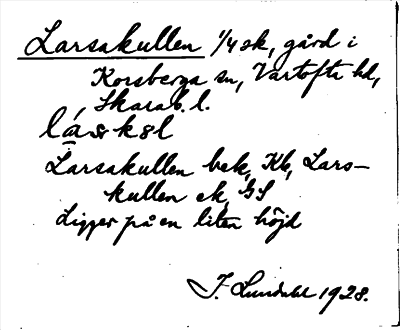 Larsakullen 1/4 sk, gård i
Korsberga sn, Vartofta hd,
Skarab. l.
Larsakullen bek, Kb, Lars-
kullen ek, GS
Ligger på en liten höjd
J. Lundahl 1928.